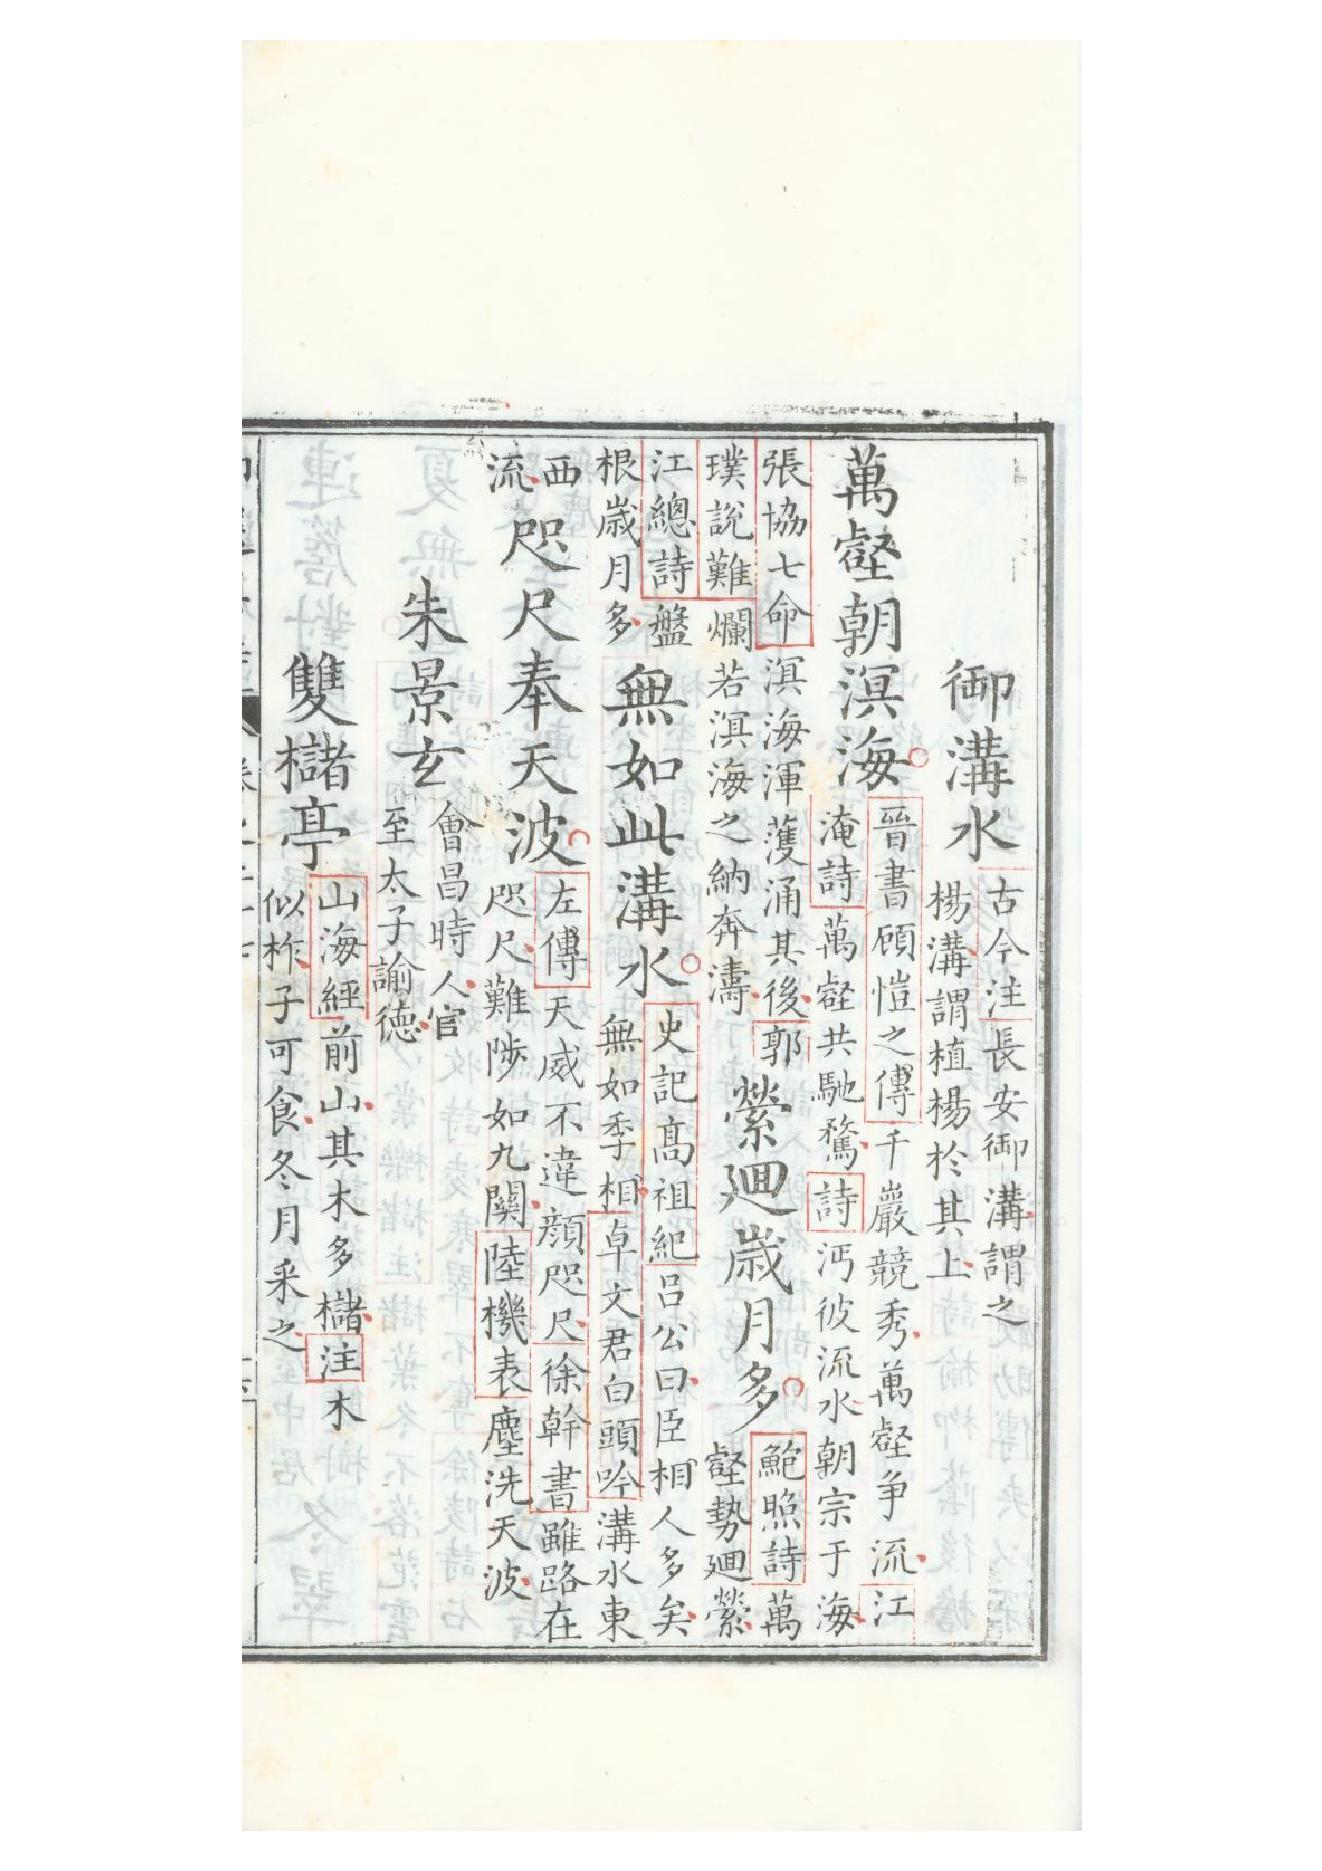 御溝水 古今注長安御溝謂之
楊溝謂植楊於其上
萬壑朝溟海 晉書顧愷之傳千巖競秀萬壑爭流江
淹詩萬壑共馳騖詩沔彼流水朝宗于海
張協七命溟海渾濩涌其後郭
璞說難爛若溟海之納奔濤
縈迴歲月多 鮑照詩萬
壑勢迴縈
江總詩盤
根歲月多
無如此溝水 史記髙祖紀吕公曰臣相人多矣
無如季相卓文君白頭吟溝水東
西
流
咫尺奉天波 左傳天威不違顔咫尺徐幹書雖路在
咫尺難陟如九關陸機表塵洗天波
朱景玄 會昌時人官
至太子諭德
雙櫧亭 山海經前山其木多櫧注木
似柞子可食冬月采之